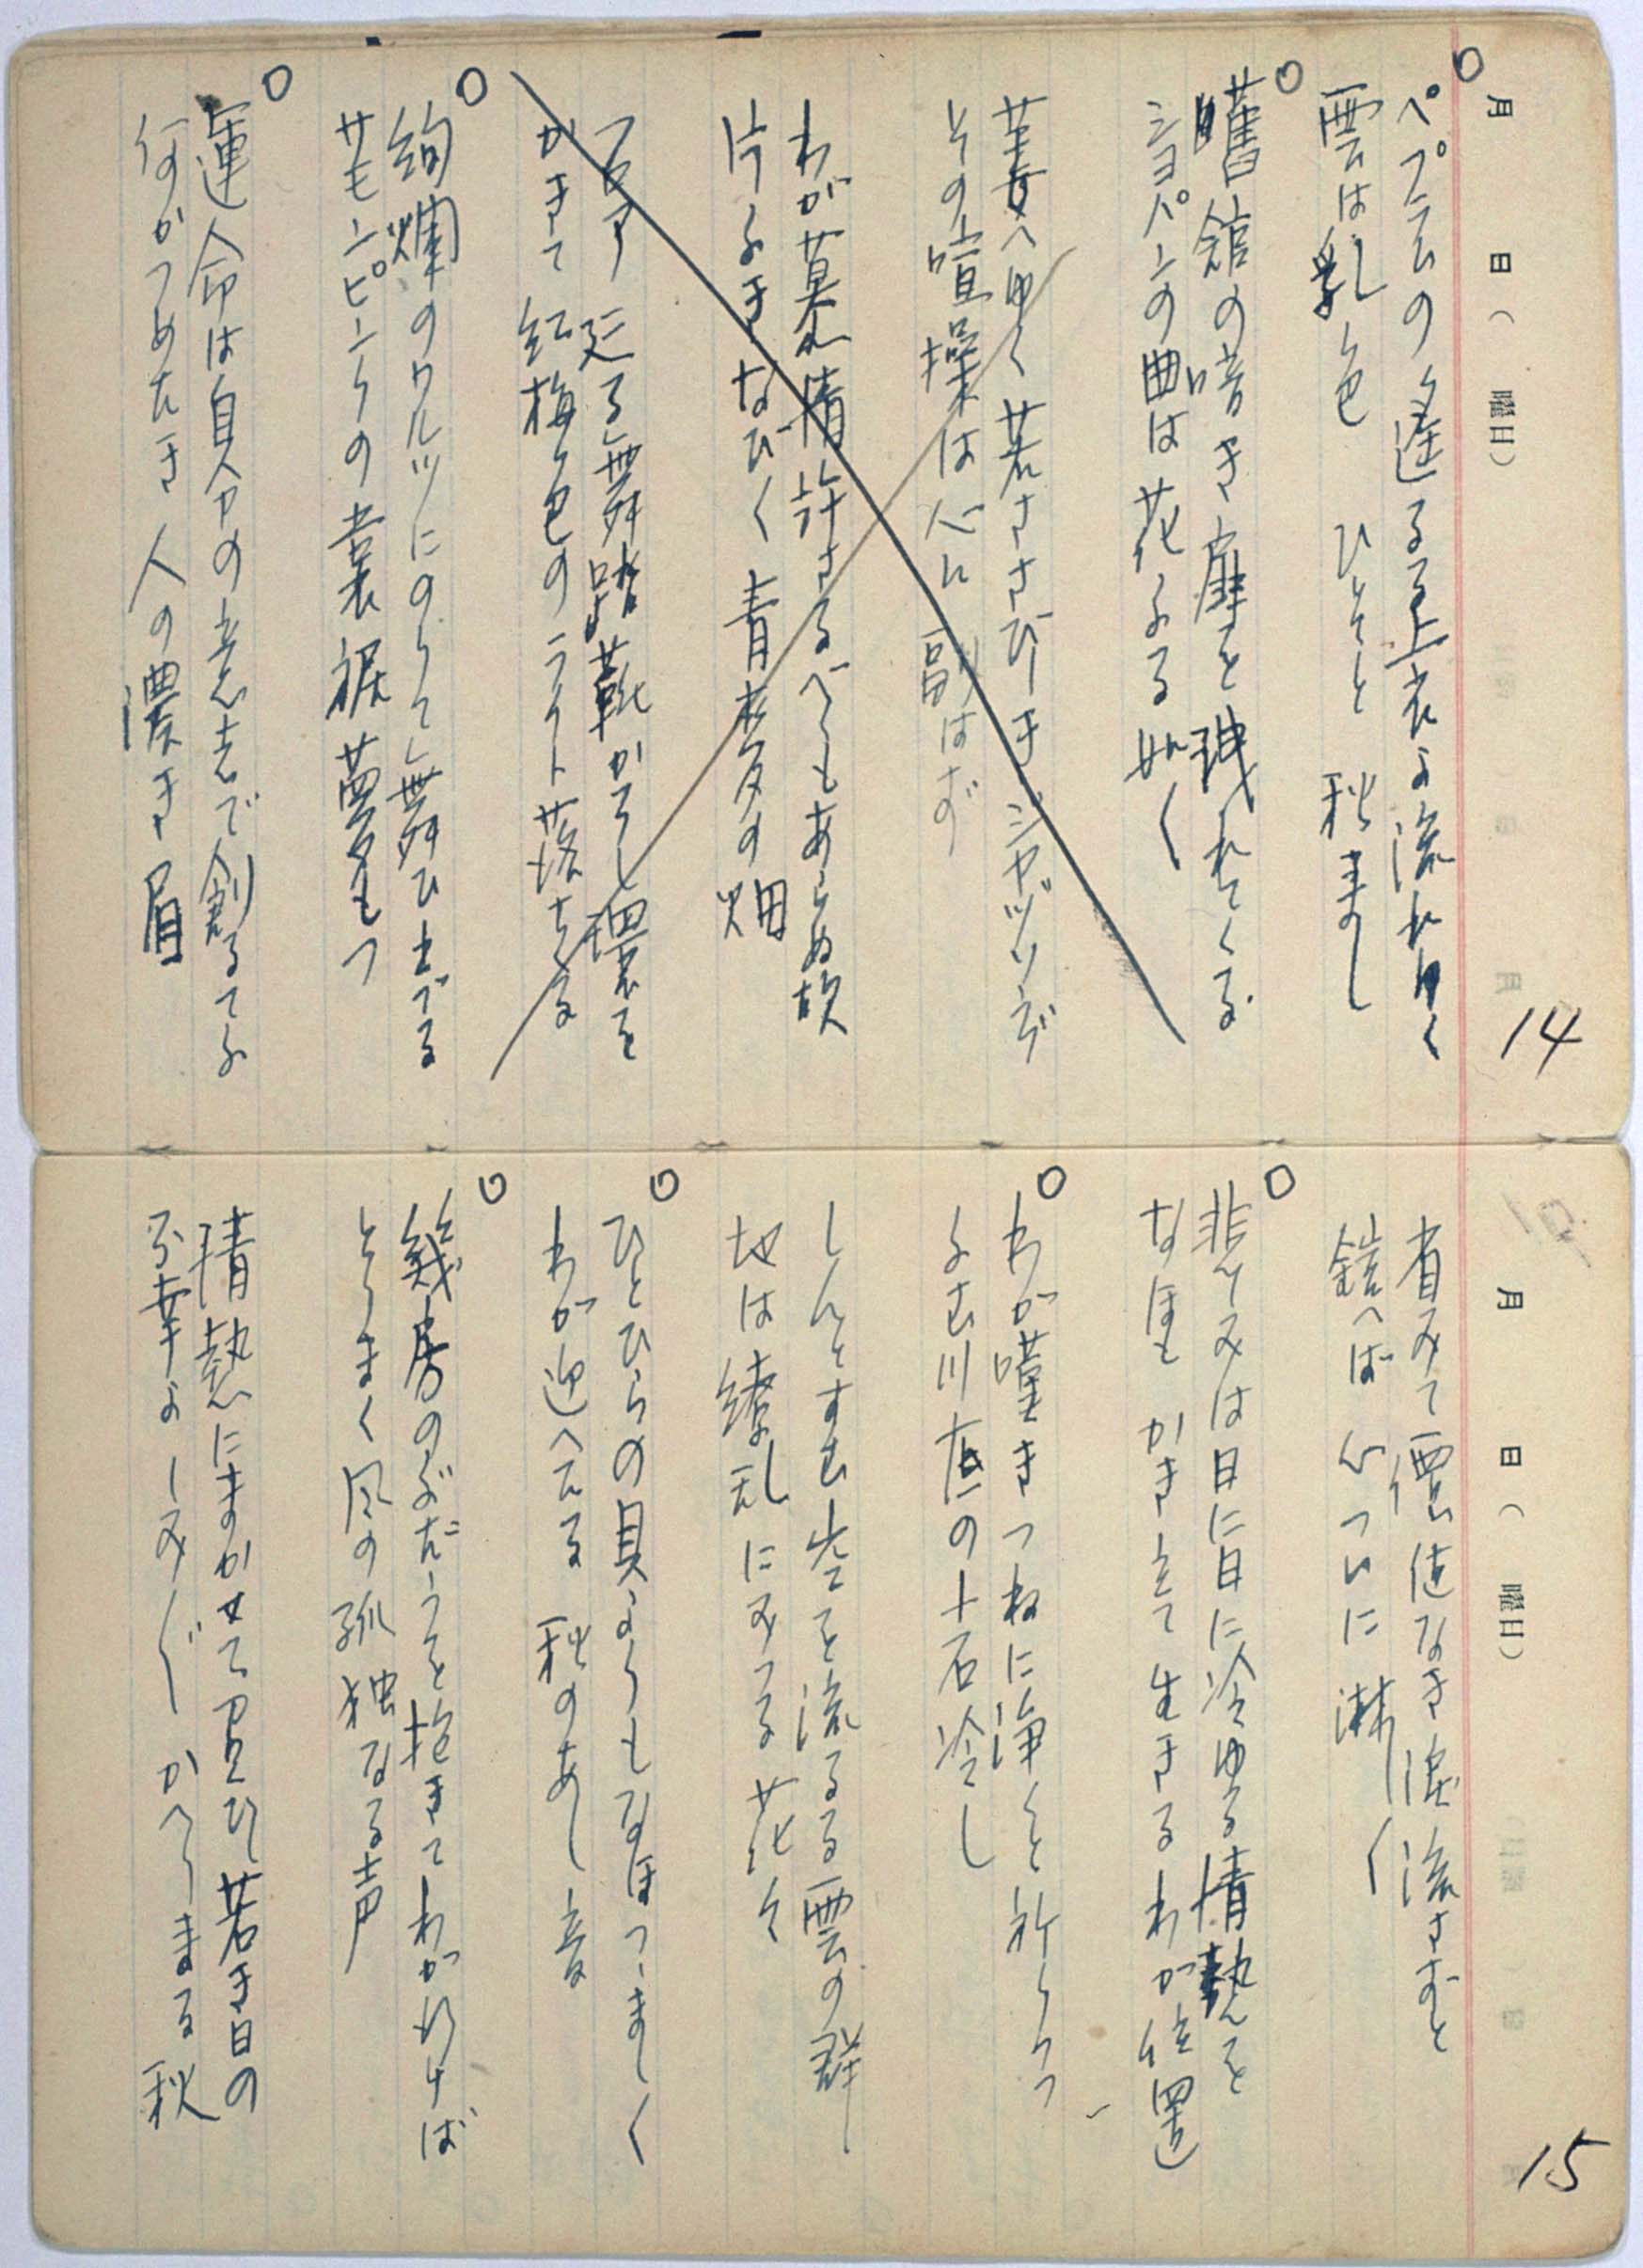 月 日( 曜日)
14
ペプラムの 遙る上衣よ流れゆく
雲は乳色 ひそと 秋まし
舊館の 暗き扉を 洩れてくる
ショパンの曲は 花ふる 如く
黄昏へゆく 若ささびしき ジャヅリズ
その喧操は心に 副はず
わが慕情 許さるべくもあらぬ故
片よきなびく 青麦の畑
フロア 廻る舞踏靴かろし 環を
かきて 紅梅色のライト 落ちくる
絢爛のワルツにのりて 舞ひ出でる
サモンピンクの 裳裾 夢もつ
運命は自分の意志で創るてふ
何かつめたき 人の濃き眉
月 日( 曜日)
15
省みて 價値なき涙 流さずと
鎧へば 心つひに 淋しく
悲しみは日に日に冷ゆる 情熱を
なほも かきたて 生きるわが位置
わが嘆き つねに浄くと 祈りつつ
よむ川底の 小石冷し
しんとすむ 空を 流るる 雲の群
地は 繚乱に みつる 花々
ひとひらの 貝よりもなほ つつましく
わが迎へたる 秋のあし音
幾房のぶだうを 抱きて わが行けば
とりまく 風の 孤独なる声
情熱にまかせて 思ひし 若き日の
不幸よ しみじみ かへりまる 秋